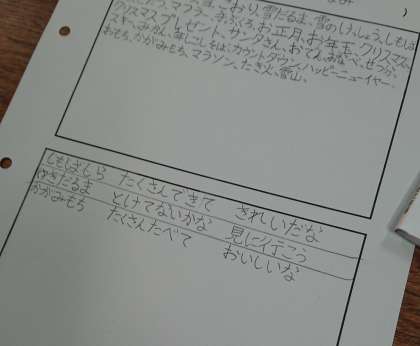 )
こおり、雪だるま、雪のけっしょう、しもばしら
マフラー、手ぶくろ、お正月、お年玉、クリスマス、
クリスマスプレゼント、サンタさん、おでん、なべ、せつぶん、
まき、みかん、年こしそば、カウントダウン、ハッピーニューイヤー、
おもち、かがみもち、マラソン、たき火、雪山、
しもばしら たくさんできて きれいだな
ゆきだるま とけてないかな 見に行こう
かがみもち たくさんたべて おいしいな